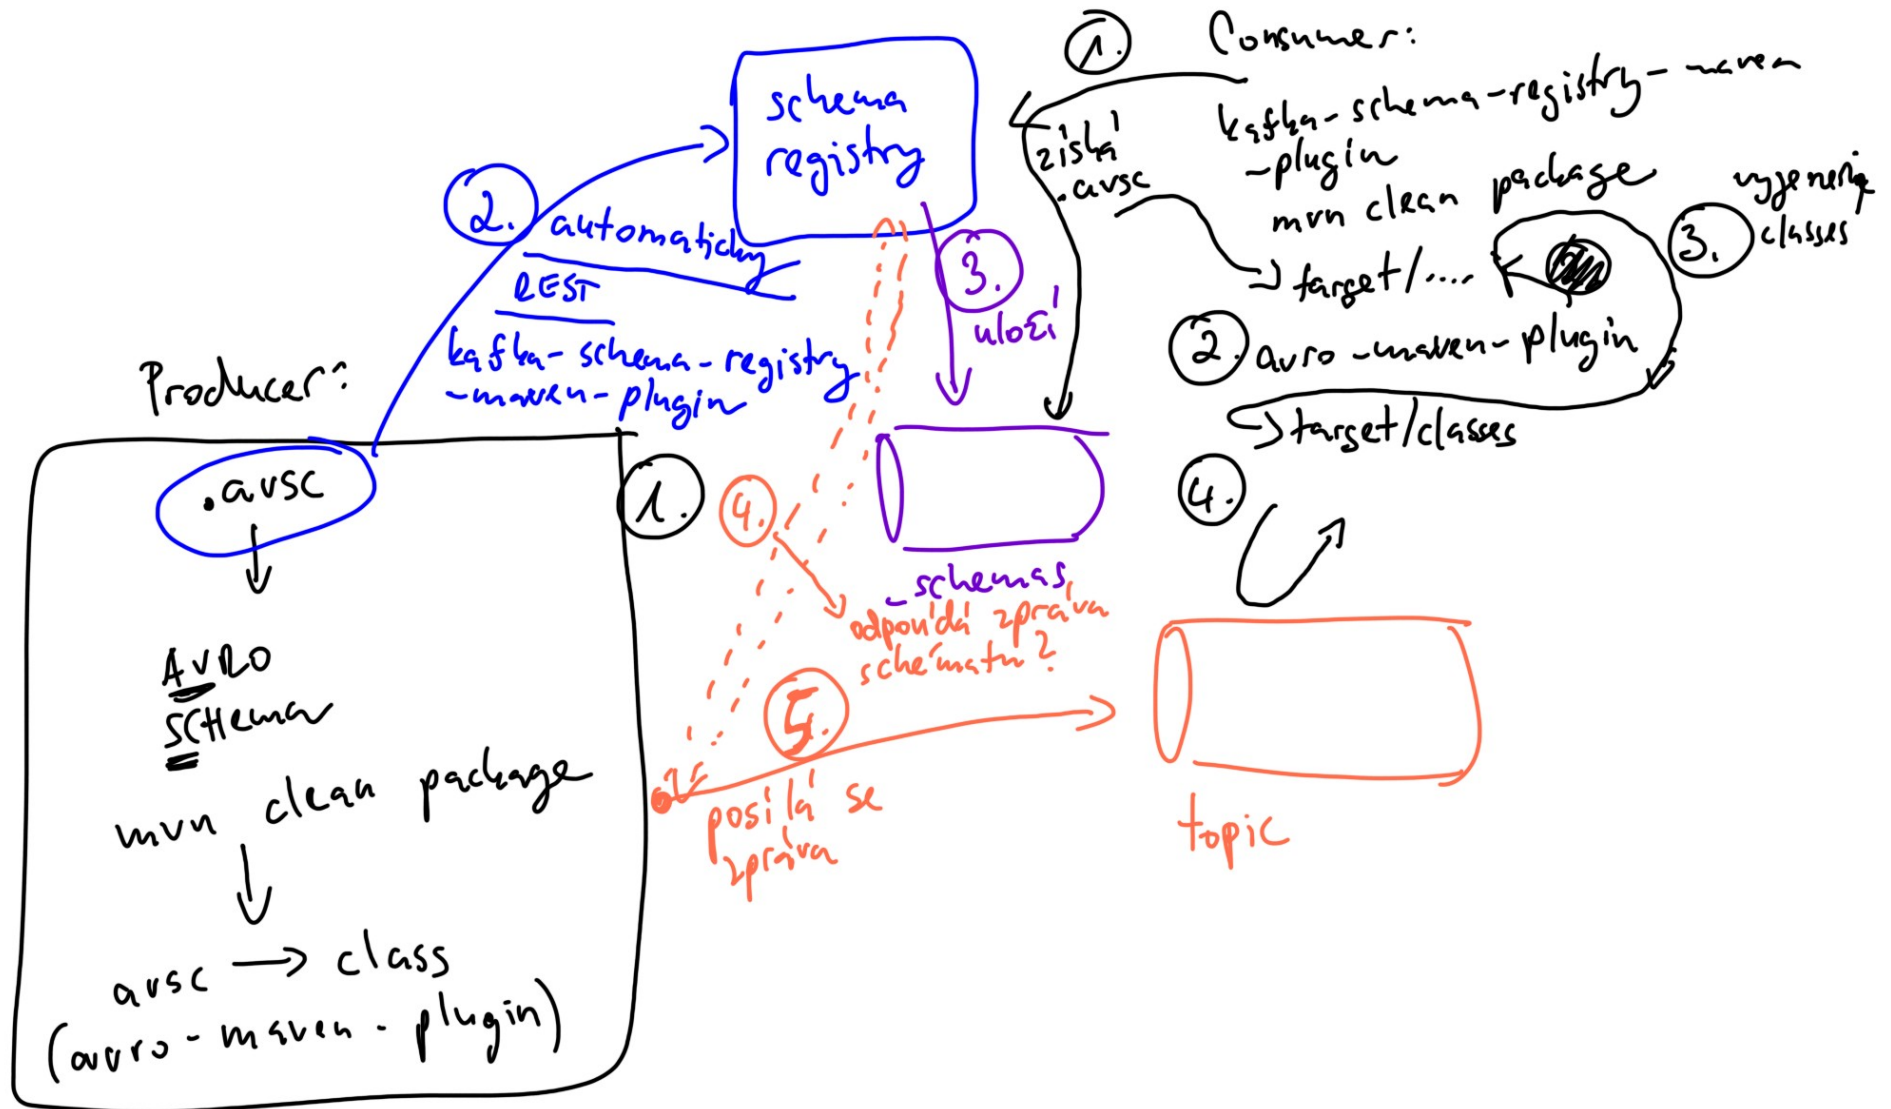 Producer:
.avsc
AVRO
SCHEMA
mvn clean package
avsc → class
(avro-maven-plugin)
1.
2.
automaticky
REST
kafka-schema-registry
-maven-plugin
schema
registry
3.
uloží
_schemas
4.
odpovídá zpráva
schématu?
5.
posílá se
zpráva
topic
Consumer:
1.
kafka-schema-registry-maven
-plugin
získá
.avsc
mvn clean package
target/....
2.
avro-maven-plugin
3.
vygeneruje
classes
target/classes
4.